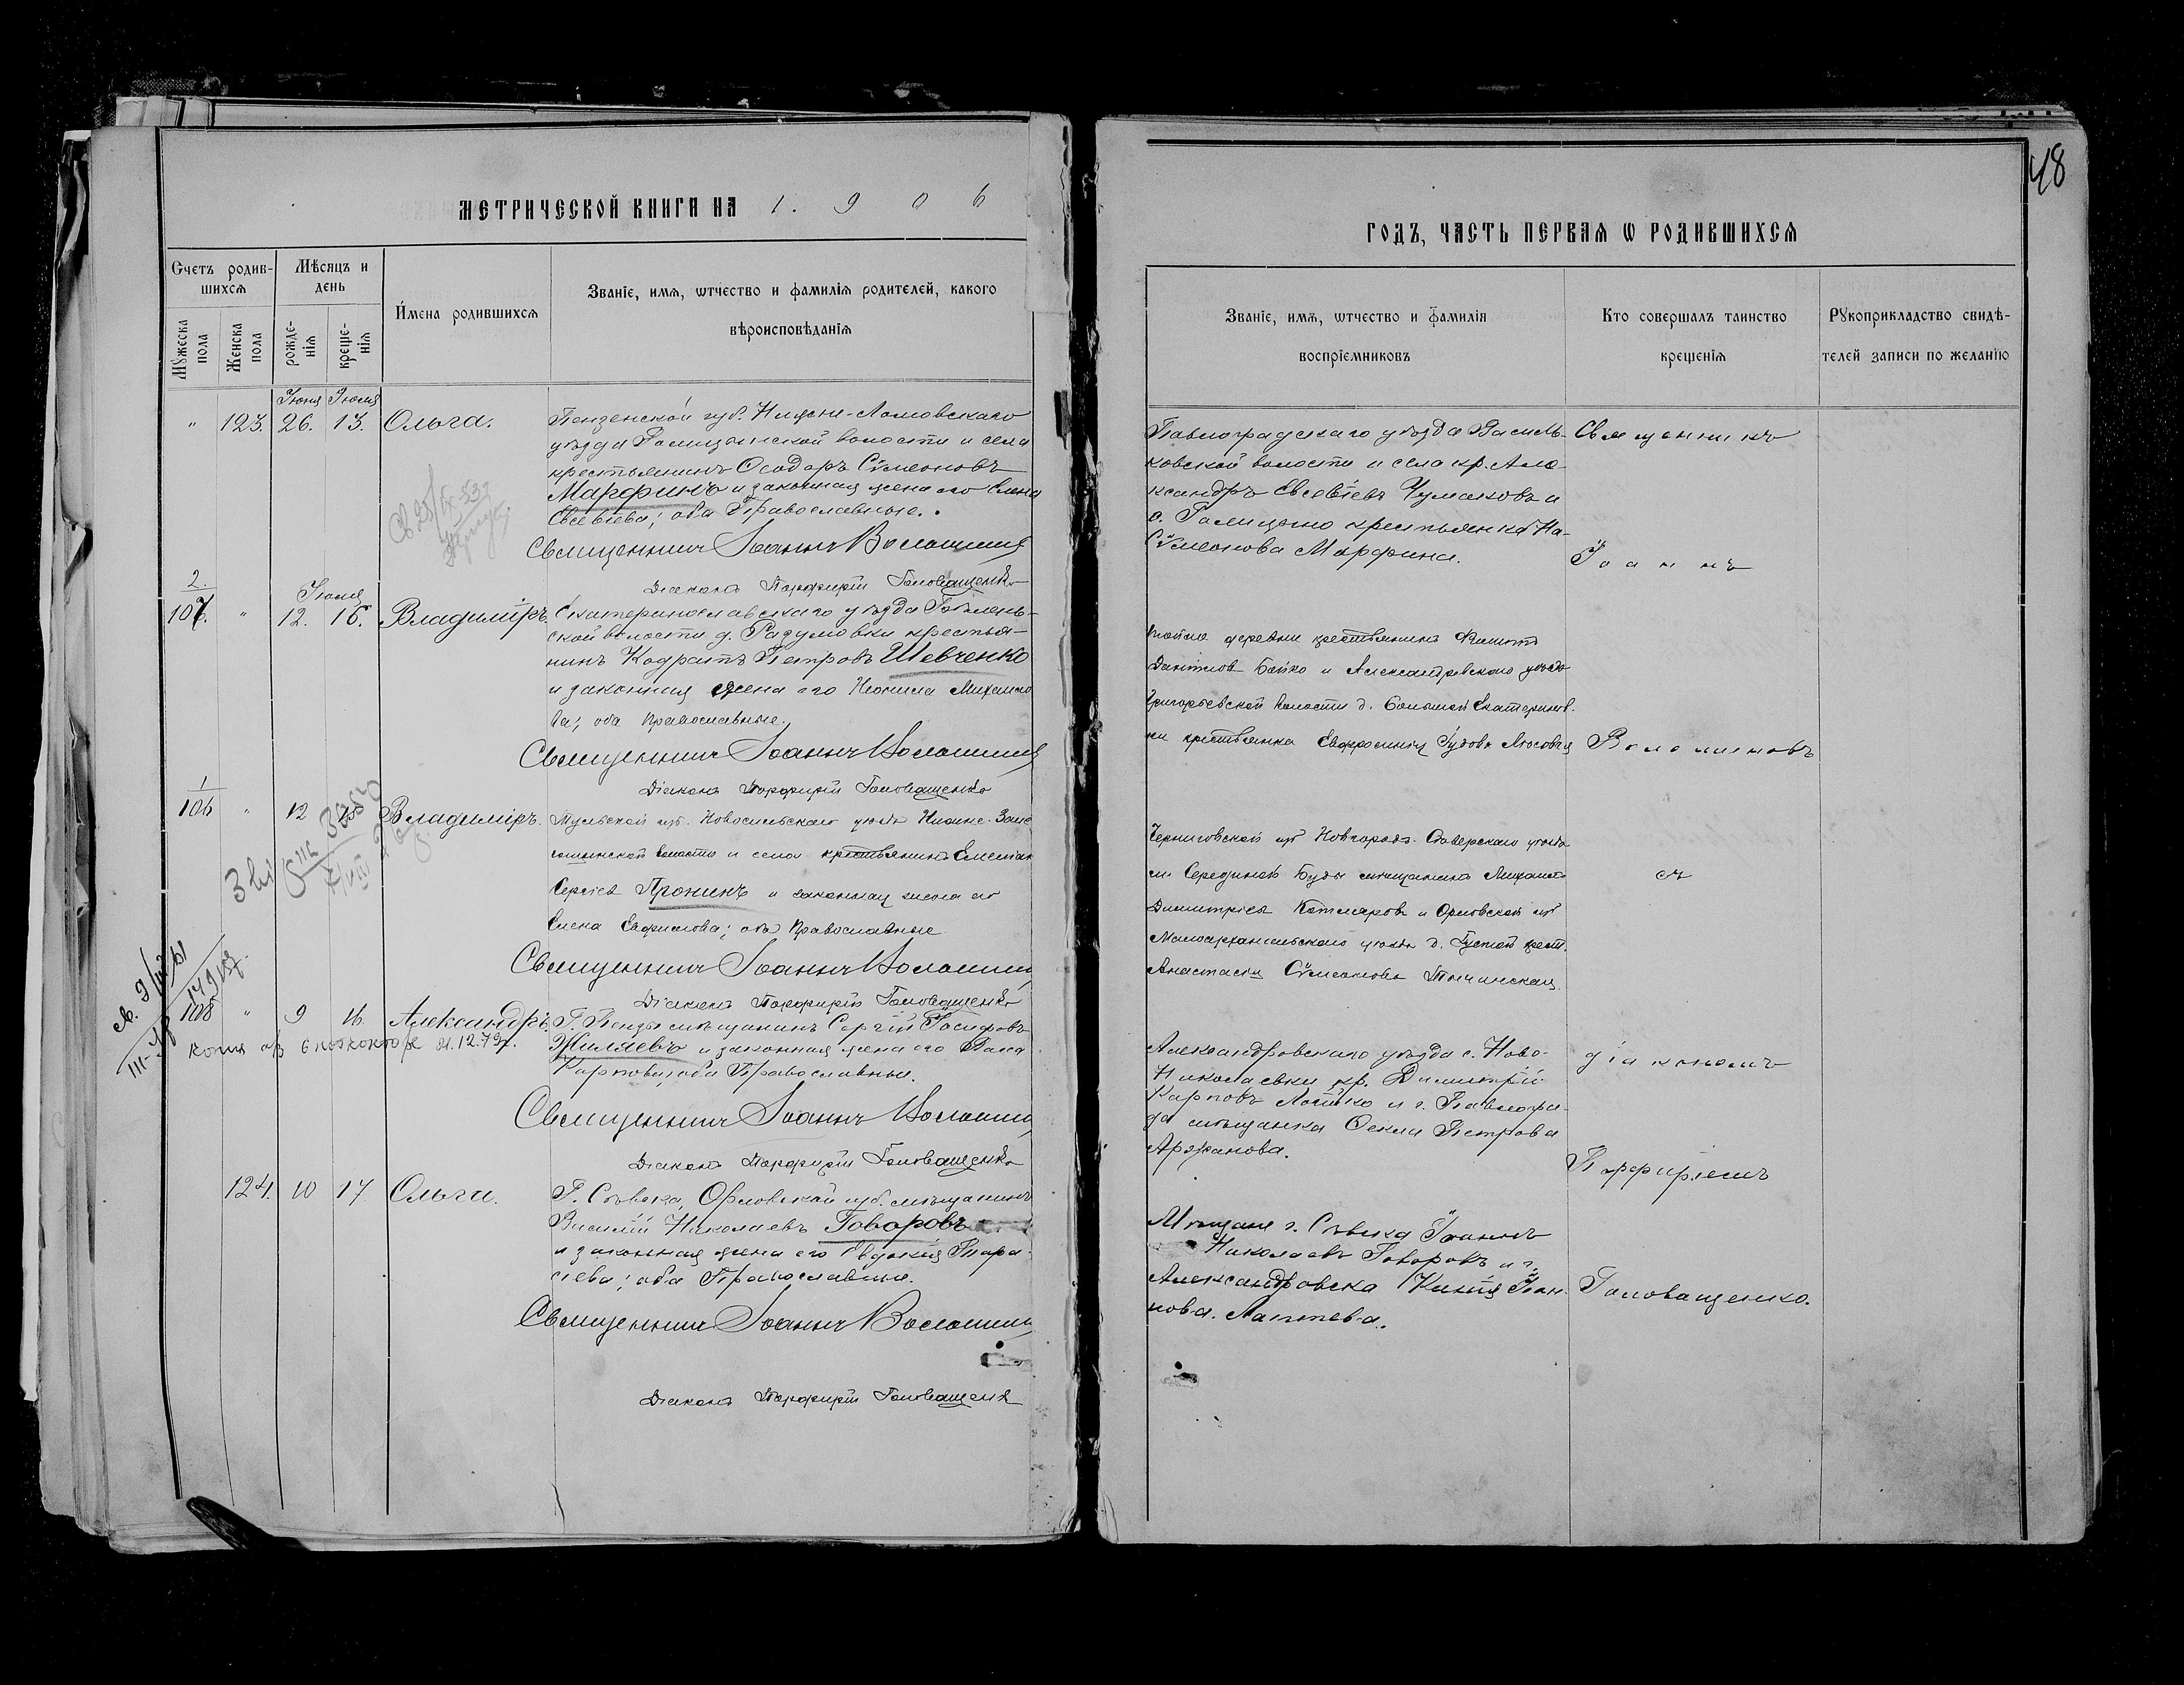 МЕТРИЧЕСКОЙ КНИГИ НА 1.906
Счетъ родив-
шихся
Мѣсяцъ и
день
Имена родившихся
Званіе, имя, ѿтчество и фамилія родителей, какого
вѣроисповѣданія
Мꙋжеска
пола
Женска
пола
рожде-
нія
креще-
нія
Іюня Іюля
" 123. 26. 13. Ольга.
Пензенской губ. Нижне-Ломовскаго
уѣзда Голицынской волости и села
крестьянинъ Ѳеодоръ Сѵмеоновъ
Марфинъ и законная жена его Елена
Евсевіева; оба Православные.
Священникъ Іоаннъ Волошинъ
Діаконъ Порфирій Головащенко
2.
Іюля
107. " 12. 16. Владиміръ.
Екатеринославскаго уѣзда
ской волости д. Разумовки крестья-
нинъ Кодратъ Петровъ Шевченко
и законная жена его Неонила Михаило
ва; оба Православные.
Священникъ Іоаннъ Волошинъ
Діаконъ Порфирій Головащенко
1
106 " 12 Владиміръ.
Тульской губ. Новосильскаго уѣзда
волости и села крестьянинъ
Сергіев Пронинъ и законная жена его
Елена; оба Православные
Священникъ Іоаннъ Волошинъ
Діаконъ Порфирій Головащенко
108 " 9 16. Александръ.
Г. Пензы мѣщанинъ Сергій Іосифовъ
Жиляевъ и законная жена его
Карпова; оба Православные.
копия 21.12.79г.
Священникъ Іоаннъ Волошинъ
Діаконъ Порфирій Головащенко
124. 10 17 Ольга.
Г. Сѣвска, Орловской губ. мѣщанинъ
Василій Николаевъ Говоровъ
и законная жена его Евдокія Тара-
сіева; оба Православные.
Священникъ Іоаннъ Волошинъ
Діаконъ Порфирій Головащенко
48
ГОДЪ, ЧАСТЬ ПЕРВАЯ Ѡ РОДИВШИХСЯ
Званіе, имя, ѿтчество и фамилія
воспріемниковъ
Кто совершалъ таинство
крещенія
Рꙋкоприкладство свидѣ-
телей записи по желанію
Павлоградскаго уѣзда Василь-
ковской волости и села кр. Але-
ксандръ Евсевіевъ Чумаковъ и
с. Голицыно крестьянка
Сѵмеонова Марфина.
деревни крестьянинъ Филиппъ
Даниловъ Бойко и Александровскаго уѣзда
Григорьевской волости д. Большой Екатеринов-
ки крестьянка Евфросинія
Черниговской губ. Новгородъ-Сѣверскаго уѣзда
м. Серединой Буды мѣщанинъ Михаилъ
Димитріевъ Котляровъ и Орловской губ.
Малоархангельскаго уѣзда д. Густой крест.
Анастасія Сѵмеонова
Александровскаго уѣзда с. Ново-
Николаевки кр. Димитрій
Карповъ и г. Павлогра-
да мѣщанка Ѳекла Петрова
Аржанова.
Мѣщане г. Сѣвска Іоаннъ
Николаевъ Говоровъ и г.
Александровска Іоан-
нова Лаптева.
Священникъ
Іоаннъ
Волошиновъ
съ
діакономъ
Порфиріемъ
Головащенко.